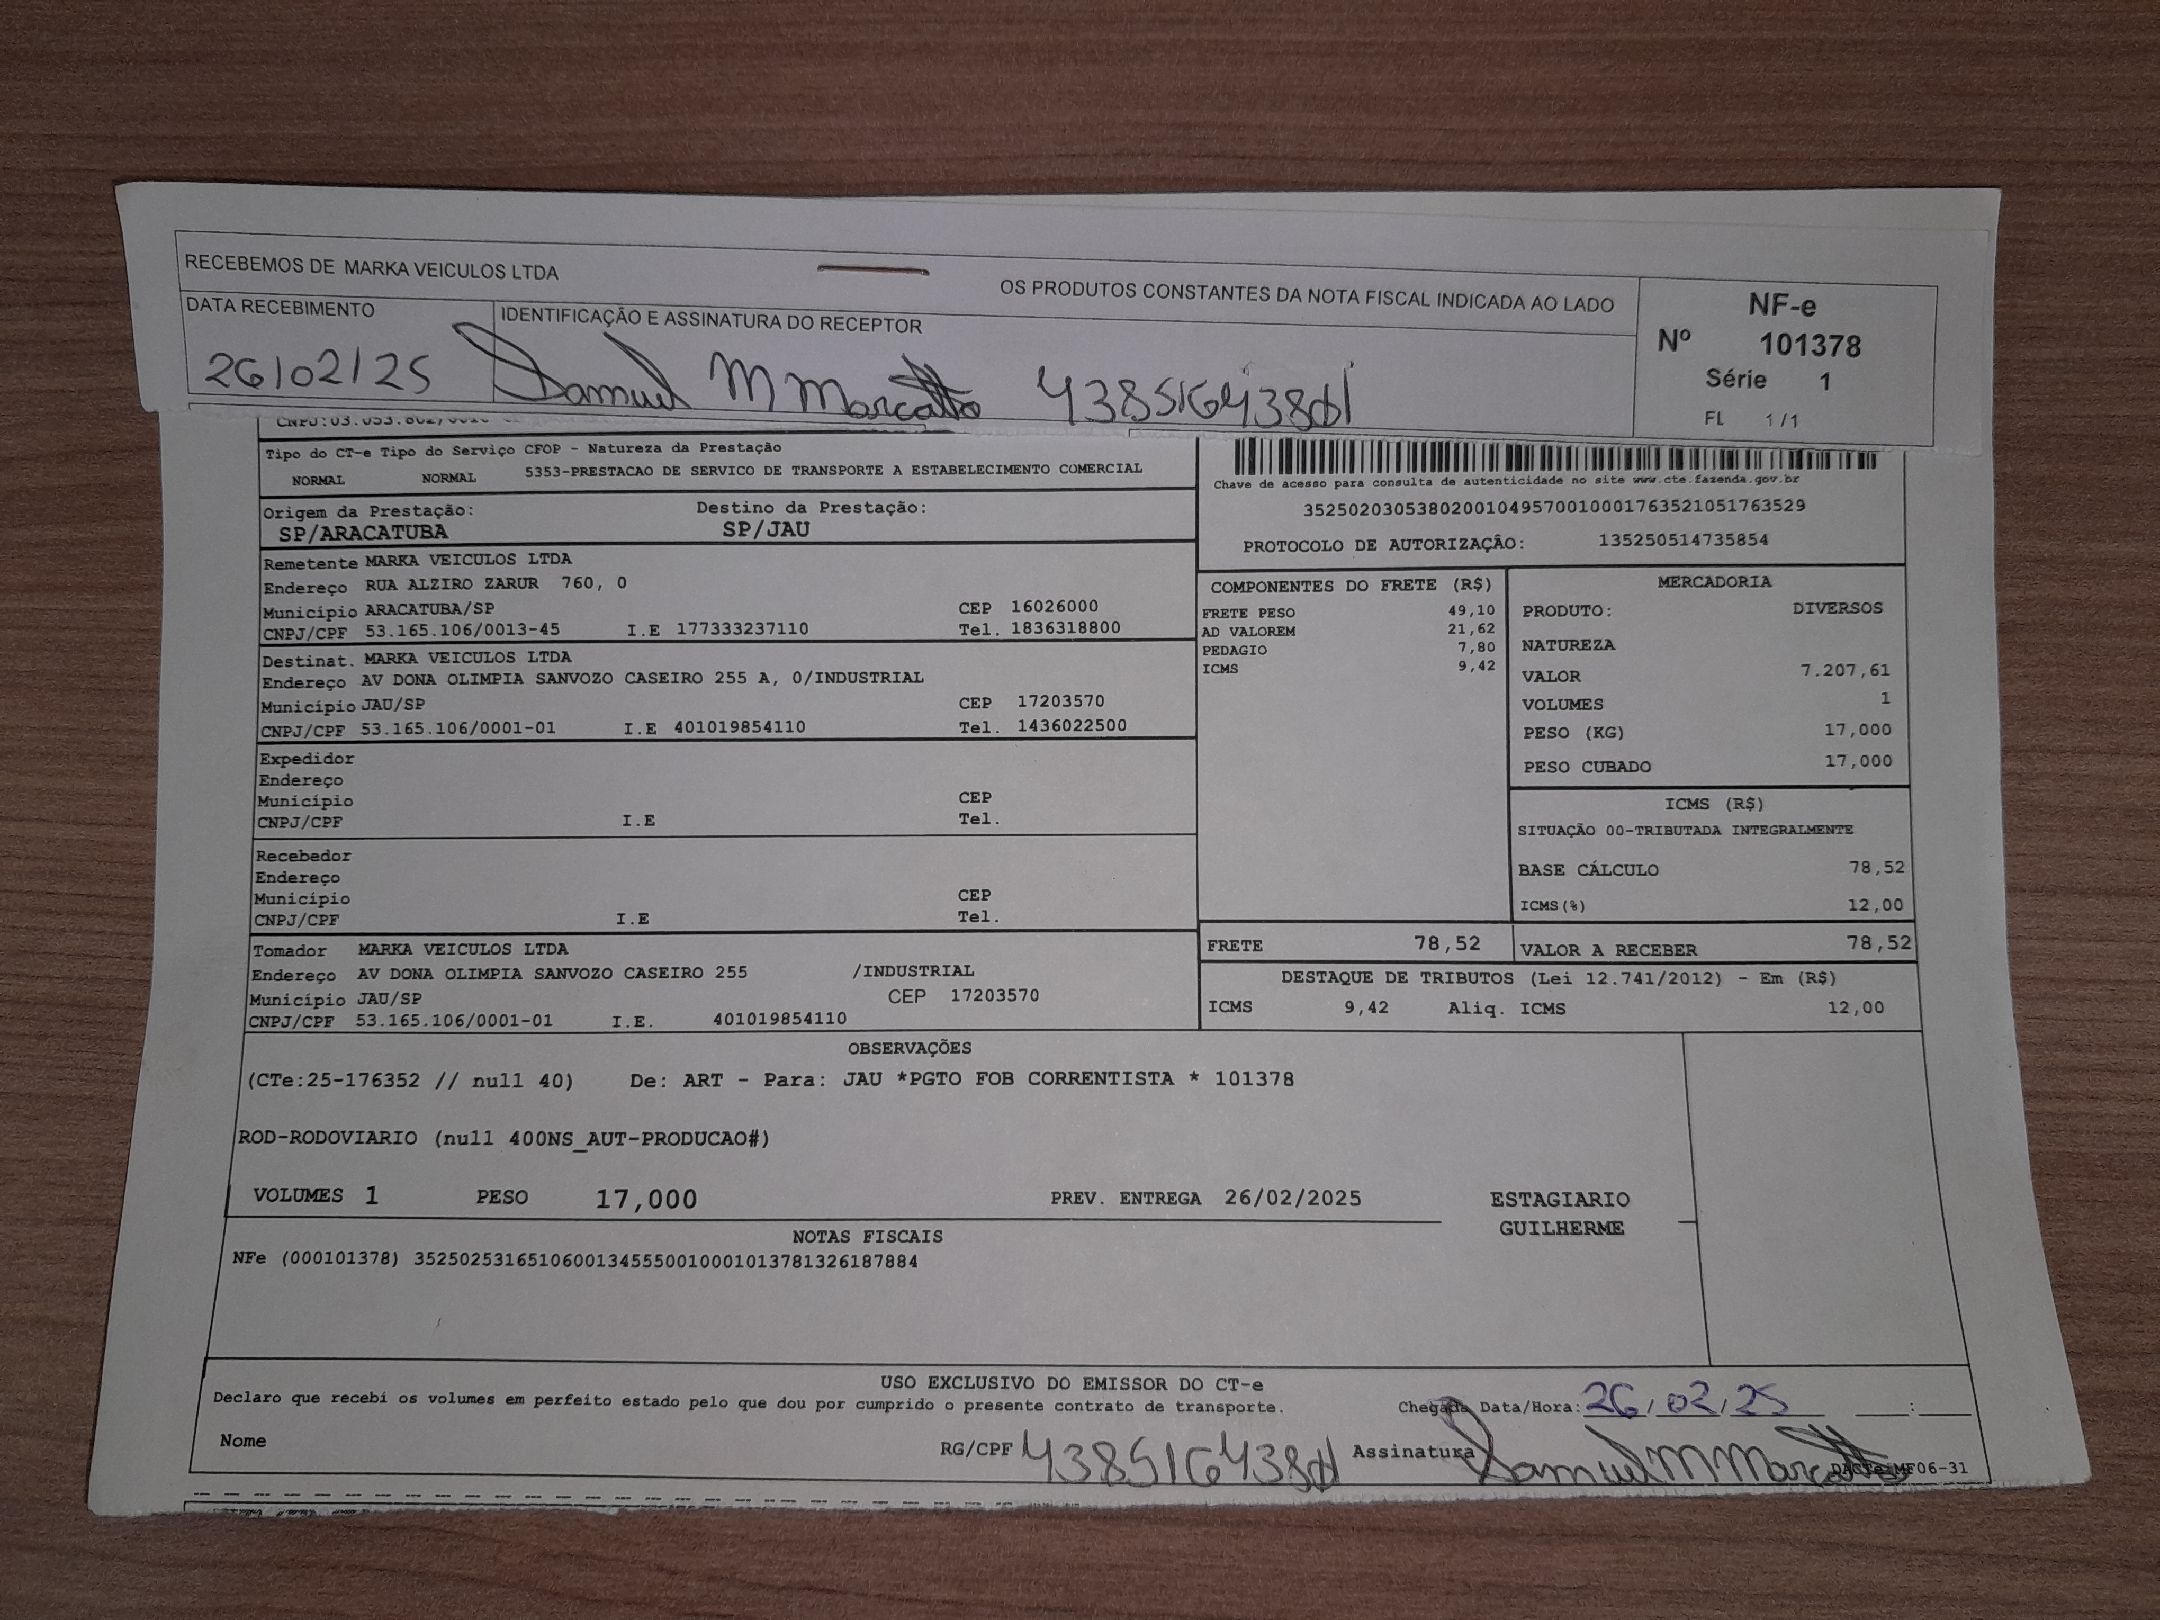 RECEBEMOS DE MARKA VEICULOS LTDA OS PRODUTOS CONSTANTES DA NOTA FISCAL INDICADA AO LADO
DATA RECEBIMENTO IDENTIFICAÇÃO E ASSINATURA DO RECEPTOR
26/02/25 Samuel M Marcatto
NF-e
Nº 101378
Série 1
FL 1 /1
Tipo do CT-e Tipo do Serviço CFOP - Natureza da Prestação
NORMAL NORMAL 5353-PRESTACAO DE SERVICO DE TRANSPORTE A ESTABELECIMENTO COMERCIAL
Origem da Prestação: Destino da Prestação:
SP/ARACATUBA SP/JAU
Remetente MARKA VEICULOS LTDA
Endereço RUA ALZIRO ZARUR 760, 0
Município ARACATUBA/SP CEP 16026000
CNPJ/CPF 53.165.106/0013-45 I.E 177333237110 Tel. 1836318800
Destinat. MARKA VEICULOS LTDA
Endereço AV DONA OLIMPIA SANVOZO CASEIRO 255 A, 0/INDUSTRIAL
Município JAU/SP CEP 17203570
CNPJ/CPF 53.165.106/0001-01 I.E 401019854110 Tel. 1436022500
Expedidor
Endereço
Município CEP
CNPJ/CPF I.E Tel.
Recebedor
Endereço
Município CEP
CNPJ/CPF I.E Tel.
Tomador MARKA VEICULOS LTDA
Endereço AV DONA OLIMPIA SANVOZO CASEIRO 255 /INDUSTRIAL
Município JAU/SP CEP 17203570
CNPJ/CPF 53.165.106/0001-01 I.E. 401019854110
Chave de acesso para consulta de autenticidade no site www.cte.fazenda.gov.br
35250203053802001049570010001763521051763529
PROTOCOLO DE AUTORIZAÇÂO: 135250514735854
COMPONENTES DO FRETE (R$)
FRETE PESO 49,10
AD VALOREM 21,62
PEDAGIO 7,80
ICMS 9,42
MERCADORIA
PRODUTO: DIVERSOS
NATUREZA
VALOR 7.207,61
VOLUMES 1
PESO (KG) 17,000
PESO CUBADO 17,000
ICMS (R$)
SITUAÇÃO 00-TRIBUTADA INTEGRALMENTE
BASE CÁLCULO 78,52
ICMS(%) 12,00
FRETE 78,52 VALOR A RECEBER 78,52
DESTAQUE DE TRIBUTOS (Lei 12.741/2012) - Em (R$)
ICMS 9,42 Aliq. ICMS 12,00
OBSERVAÇÕES
(CTe:25-176352 // null 40) De: ART - Para: JAU *PGTO FOB CORRENTISTA * 101378
ROD-RODOVIARIO (null 400NS_AUT-PRODUCAO#)
VOLUMES 1 PESO 17,000 PREV. ENTREGA 26/02/2025 ESTAGIARIO
GUILHERME
NOTAS FISCAIS
NFe (000101378) 35250253165106001345550010001013781326187884
USO EXCLUSIVO DO EMISSOR DO CT-e
Declaro que recebi os volumes em perfeito estado pelo que dou por cumprido o presente contrato de transporte. Chegada Data/Hora: 26/02/25 __:__
Nome RG/CPF Assinatura Samuel M Marcatto
DACTe-MF06-31